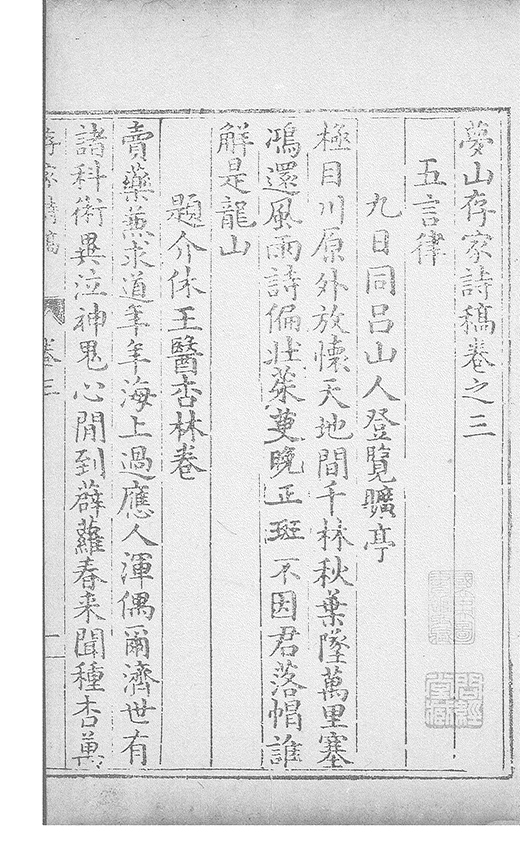 夢山存家詩稿卷之三
五言律
九日同呂山人登覽曠亭
極目川原外放懷天地間千林秋葉墜萬里塞
鴻還風雨詩偏壯茱萸晚正斑不因君落帽誰
解是龍山
題介休王醫杏林卷
賣藥兼求道年年海上過應人渾偶爾濟世有
諸科術異泣神鬼心閒到薜蘿春来聞種杏萬
存家詩稿
卷三
一